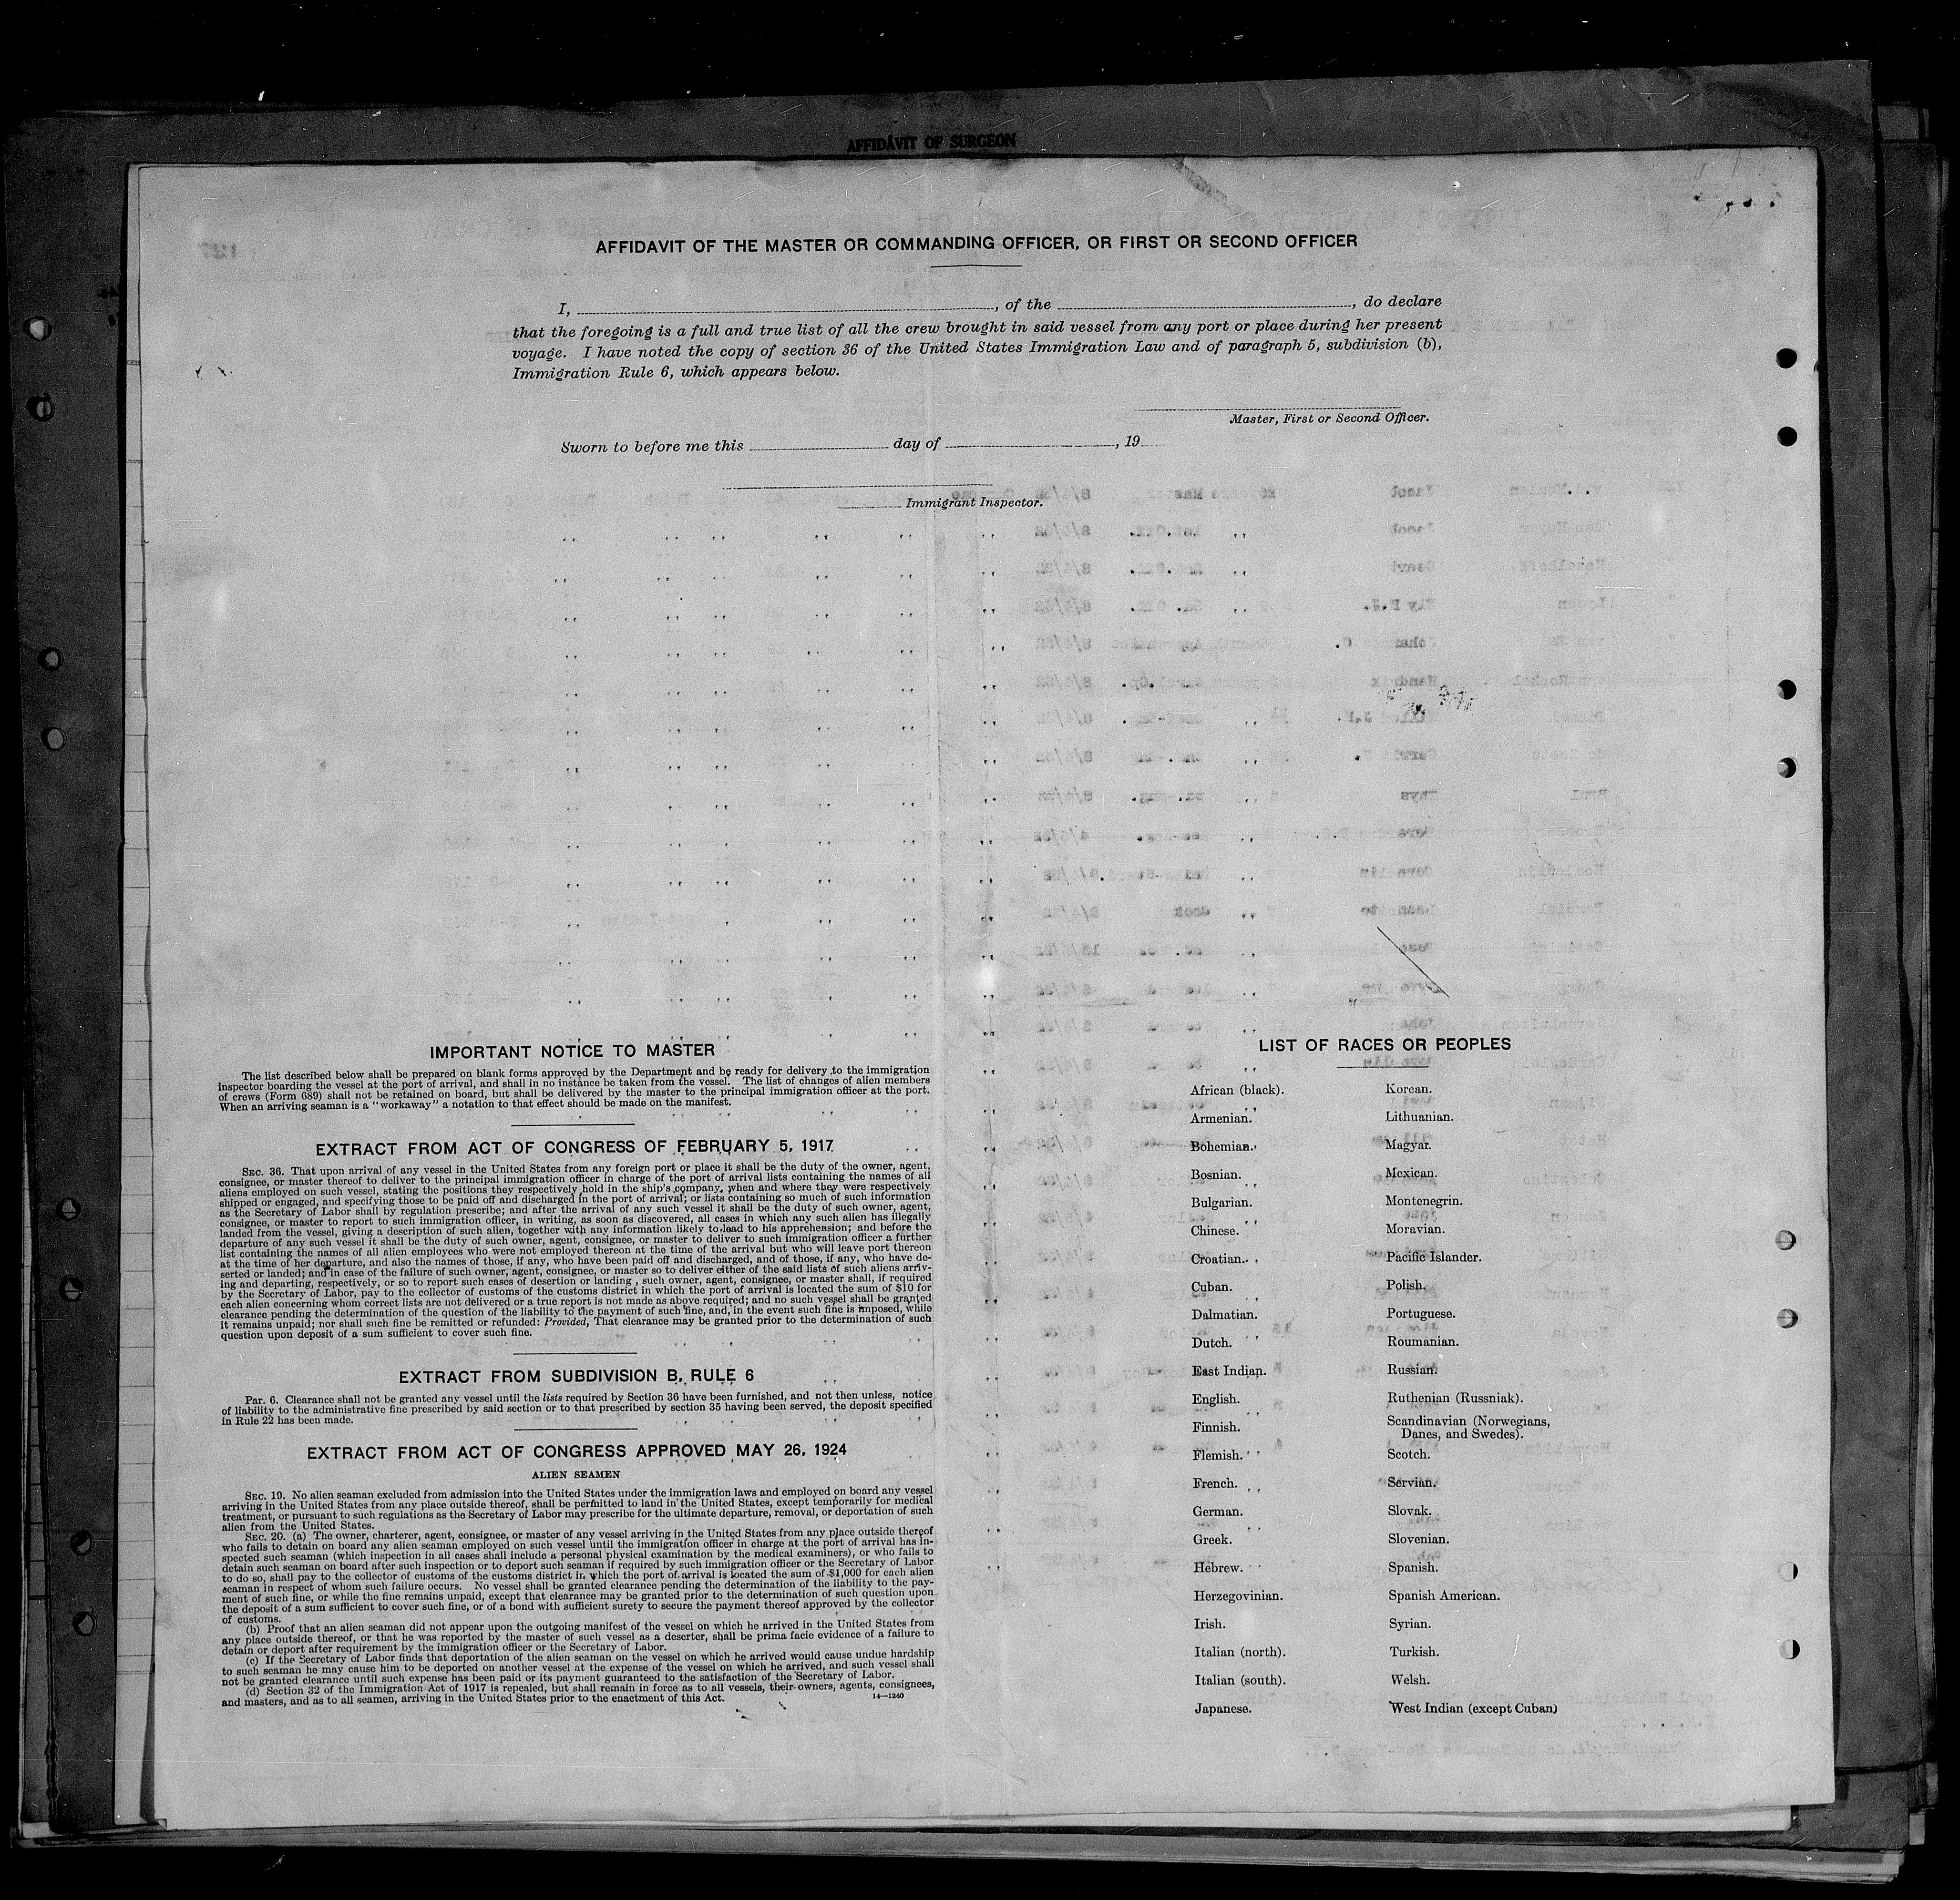 AFFIDAVIT OF SURGEON
AFFIDAVIT OF THE MASTER OR COMMANDING OFFICER, OR FIRST OR SECOND OFFICER
I, , of the , do declare
that the foregoing is a full and true list of all the crew brought in said vessel from any port or place during her present
voyage. I have noted the copy of section 36 of the United States Immigration Law and of paragraph 5, subdivision (b),
Immigration Rule 6, which appears below.
Master, First or Second Officer.
Sworn to before me this day of , 19
Immigrant Inspector.
IMPORTANT NOTICE TO MASTER
The list described below shall be prepared on blank forms approved by the Department and be ready for delivery to the immigration
inspector boarding the vessel at the port of arrival, and shall in no instance be taken from the vessel. The list of changes of alien members
of crews (Form 689) shall not be retained on board, but shall be delivered by the master to the principal immigration officer at the port.
When an arriving seaman is a "workaway" a notation to that effect should be made on the manifest.
EXTRACT FROM ACT OF CONGRESS OF FEBRUARY 5, 1917
SEC. 36. That upon arrival of any vessel in the United States from any foreign port or place it shall be the duty of the owner, agent,
consignee, or master thereof to deliver to the principal immigration officer in charge of the port of arrival lists containing the names of all
aliens employed on such vessel, stating the positions they respectively hold in the ship's company, when and where they were respectively
shipped or engaged, and specifying those to be paid off and discharged in the port of arrival; or lists containing so much of such information
as the Secretary of Labor shall by regulation prescribe; and after the arrival of any such vessel it shall be the duty of such owner, agent,
consignee, or master to report to such immigration officer, in writing, as soon as discovered, all cases in which any such alien has illegally
landed from the vessel, giving a description of such alien, together with any information likely to lead to his apprehension; and before the
departure of any such vessel it shall be the duty of such owner, agent, consignee, or master to deliver to such immigration officer a further
list containing the names of all alien employees who were not employed thereon at the time of the arrival but who will leave port thereon
at the time of her departure, and also the names of those, if any, who have been paid off and discharged, and of those, if any, who have de-
serted or landed; and in case of the failure of such owner, agent, consignee, or master so to deliver either of the said lists of such aliens arriv-
ing and departing, respectively, or so to report such cases of desertion or landing , such owner, agent, consignee, or master shall, if required
by the Secretary of Labor, pay to the collector of customs of the customs district in which the port of arrival is located the sum of $10 for
each alien concerning whom correct lists are not delivered or a true report is not made as above required; and no such vessel shall be granted
clearance pending the determination of the question of the liability to the payment of such fine, and, in the event such fine is imposed, while
it remains unpaid; nor shall such fine be remitted or refunded: Provided, That clearance may be granted prior to the determination of such
question upon deposit of a sum sufficient to cover such fine.
EXTRACT FROM SUBDIVISION B, RULE 6
Par. 6. Clearance shall not be granted any vessel until the lists required by Section 36 have been furnished, and not then unless, notice
of liability to the administrative fine prescribed by said section or to that prescribed by section 35 having been served, the deposit specified
in Rule 22 has been made.
EXTRACT FROM ACT OF CONGRESS APPROVED MAY 26, 1924
ALIEN SEAMEN
SEC. 19. No alien seaman excluded from admission into the United States under the immigration laws and employed on board any vessel
arriving in the United States from any place outside thereof, shall be permitted to land in the United States, except temporarily for medical
treatment, or pursuant to such regulations as the Secretary of Labor may prescribe for the ultimate departure, removal, or deportation of such
alien from the United States.
SEC. 20. (a) The owner, charterer, agent, consignee, or master of any vessel arriving in the United States from any place outside thereof
who fails to detain on board any alien seaman employed on such vessel until the immigration officer in charge at the port of arrival has in-
spected such seaman (which inspection in all cases shall include a personal physical examination by the medical examiners), or who fails to
detain such seaman on board after such inspection or to deport such seaman if required by such immigration officer or the Secretary of Labor
to do so, shall pay to the collector of customs of the customs district in which the port of arrival is located the sum of $1,000 for each alien
seaman in respect of whom such failure occurs. No vessel shall be granted clearance pending the determination of the liability to the pay-
ment of such fine, or while the fine remains unpaid, except that clearance may be granted prior to the determination of such question upon
the deposit of a sum sufficient to cover such fine, or of a bond with sufficient surety to secure the payment thereof approved by the collector
of customs.
(b) Proof that an alien seaman did not appear upon the outgoing manifest of the vessel on which he arrived in the United States from
any place outside thereof, or that he was reported by the master of such vessel as a deserter, shall be prima facie evidence of a failure to
detain or deport after requirement by the immigration officer or the Secretary of Labor.
(c) If the Secretary of Labor finds that deportation of the alien seaman on the vessel on which he arrived would cause undue hardship
to such seaman he may cause him to be deported on another vessel at the expense of the vessel on which he arrived, and such vessel shall
not be granted clearance until such expense has been paid or its payment guaranteed to the satisfaction of the Secretary of Labor.
(d) Section 32 of the Immigration Act of 1917 is repealed, but shall remain in force as to all vessels, their owners, agents, consignees,
and masters, and as to all seamen, arriving in the United States prior to the enactment of this Act.
14—1240
LIST OF RACES OR PEOPLES
African (black).
Armenian.
Bohemian.
Bosnian.
Bulgarian.
Chinese.
Croatian.
Cuban.
Dalmatian.
Dutch.
East Indian.
English.
Finnish.
Flemish.
French.
German.
Greek.
Hebrew.
Herzegovinian.
Irish.
Italian (north).
Italian (south).
Japanese.
Korean.
Lithuanian.
Magyar.
Mexican.
Montenegrin.
Moravian.
Pacific Islander.
Polish.
Portuguese.
Roumanian.
Russian.
Ruthenian (Russniak).
Scandinavian (Norwegians,
Danes, and Swedes).
Scotch.
Servian.
Slovak.
Slovenian.
Spanish.
Spanish American.
Syrian.
Turkish.
Welsh.
West Indian (except Cuban)